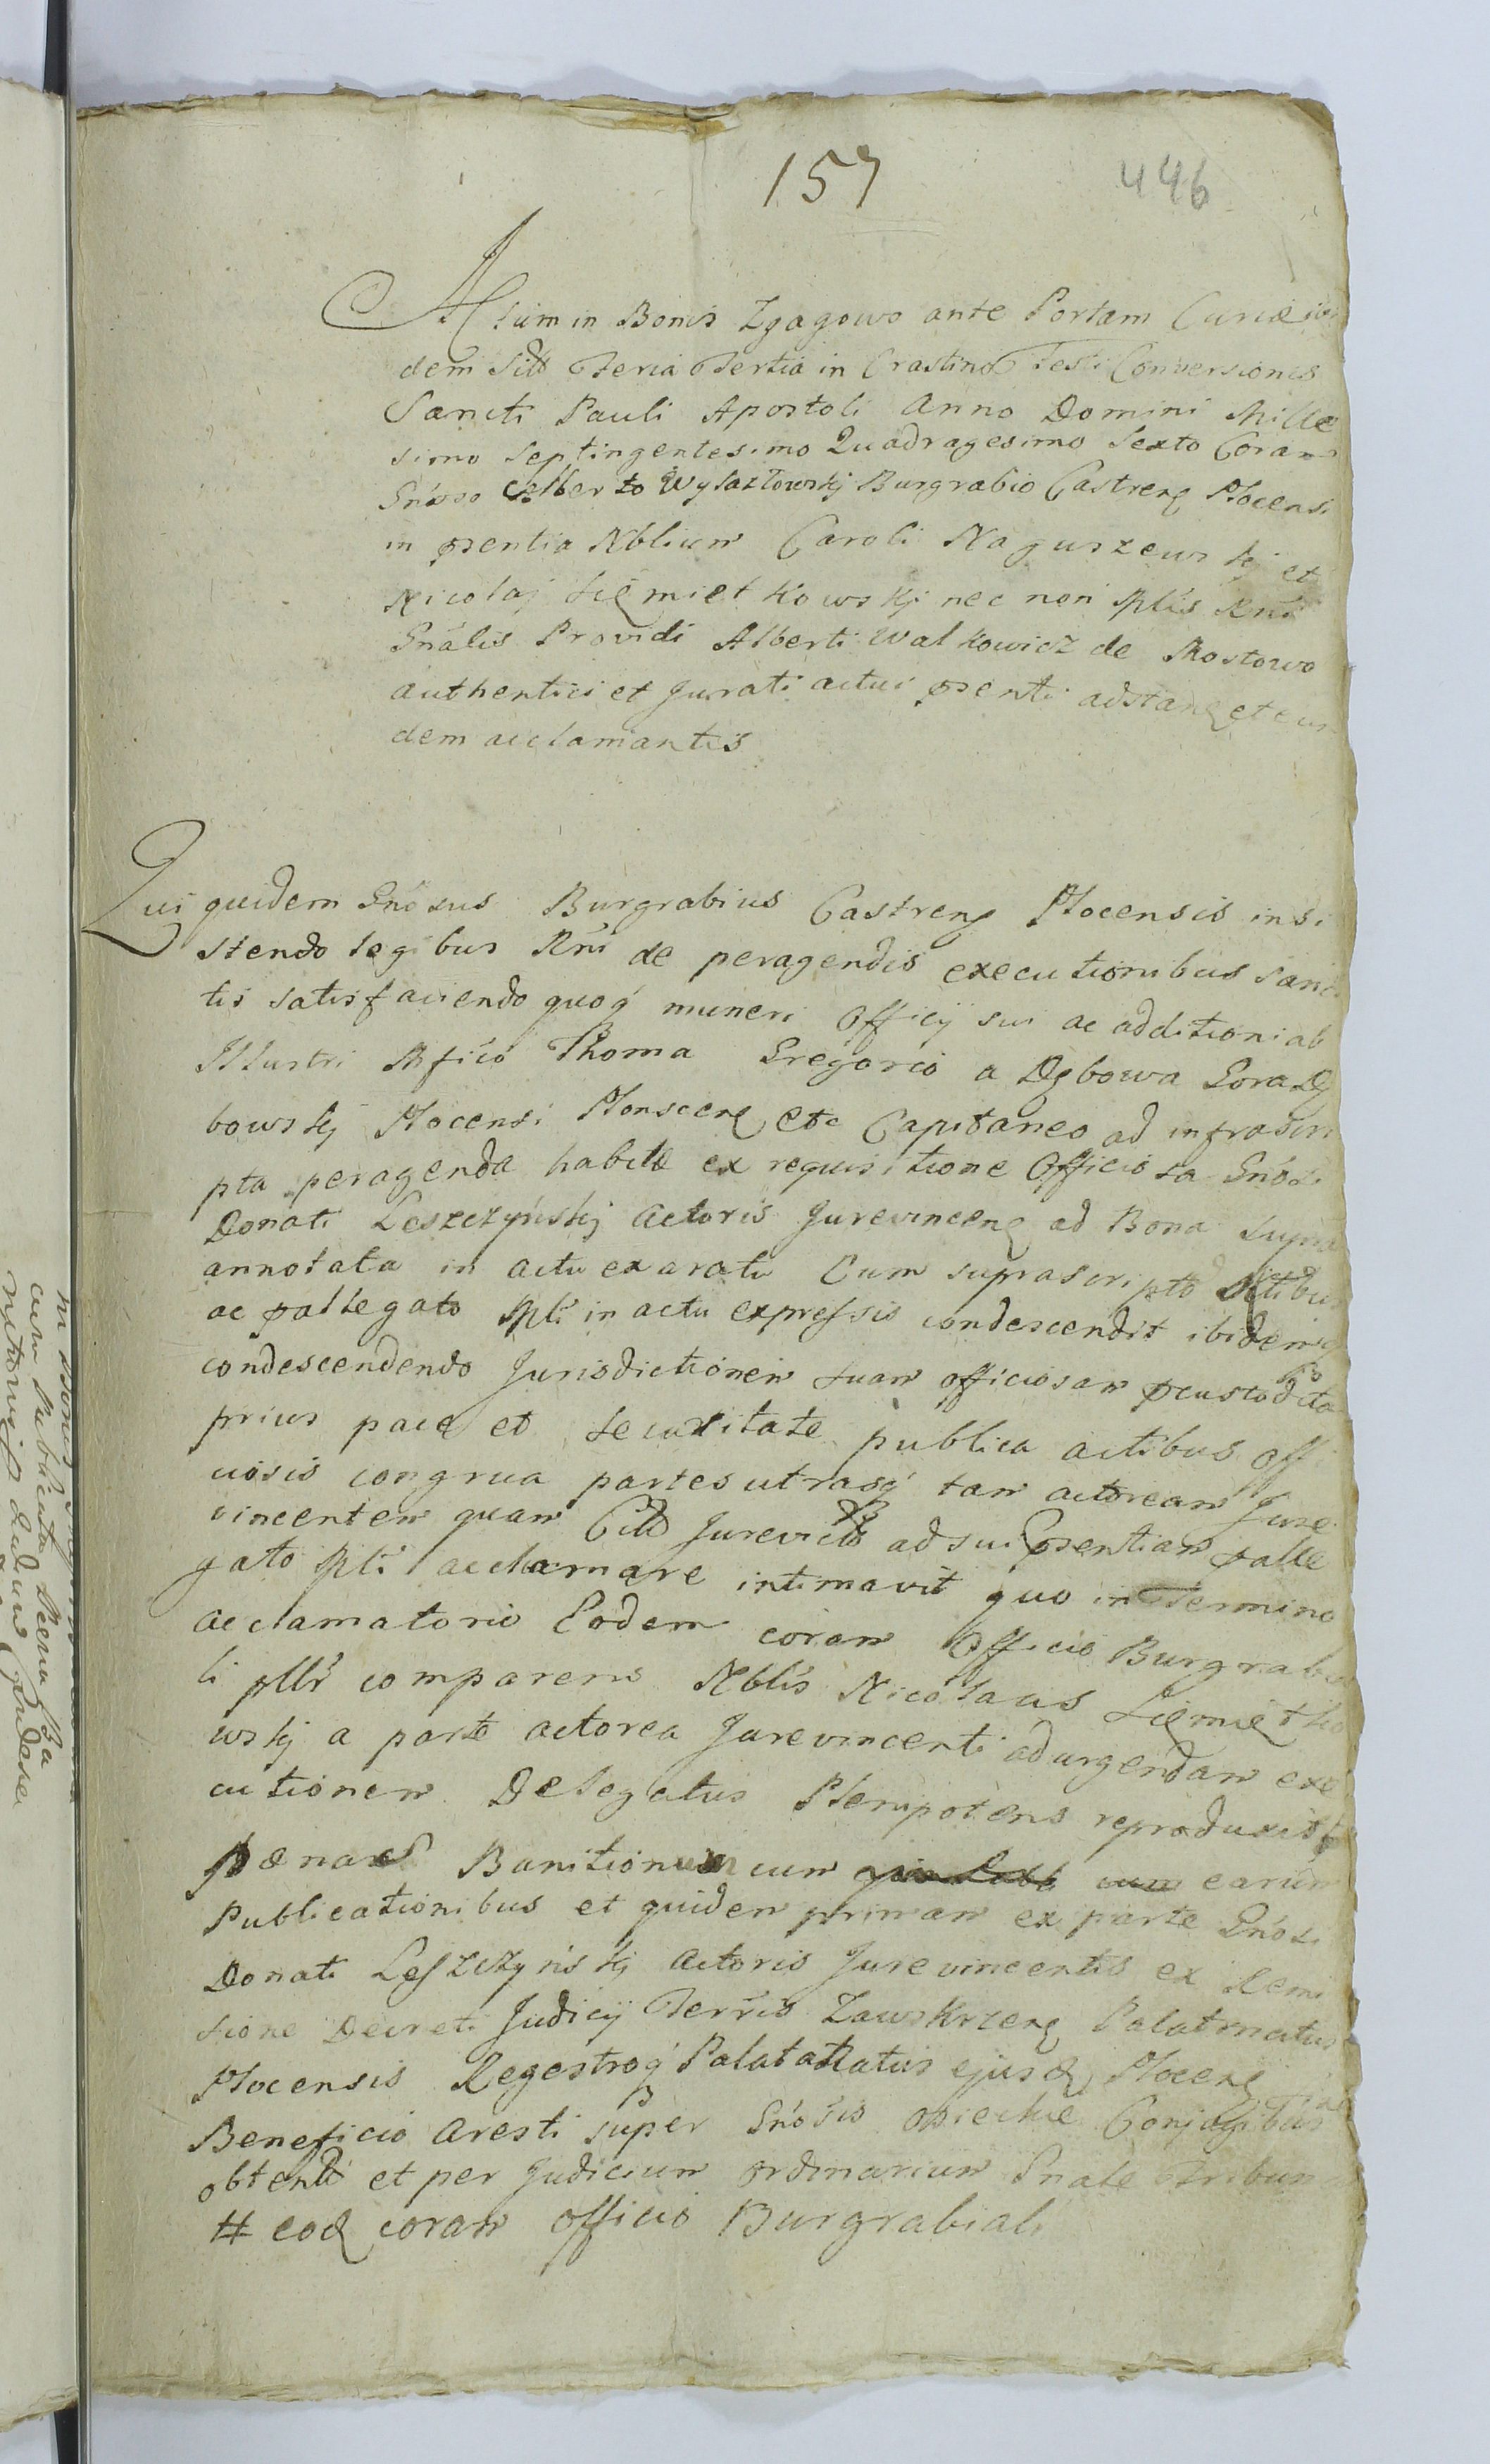 157
446
Actum in Bonis Zgagowo ante Portam Curiæ ibi
dem sitt Feria Tertia in Crastino Festi Conversionis
Sancti Pauli Apostoli Anno Domini Mille
simo Septingentesimo Quadragesimo Sexto Coram
Gnoso Alberto Wylazłowskj Burgrabio Castren Plocensi
in psentia Nblium Caroli Naguszewskj et
Nicolaj Sięmiętkowskj nec non Mplis Rni
Gnalis Providi Alberti Walkowicz de Mostowo
authentici et Jurati actui psenti adstan et eun
dem acclamantis
Qui quidem Gnosus Burgrabius Castren Plocensis insi
stendo legibus Rni de peragendis executionibus sanci
tis satisfaciendo quoq muneri Officij sui ac additioni ab
Illustri Mfico Thoma Gregorio a Dębowa Gora Dę
bowskj Plocensi Plonscen etc Capitaneo ad infrascri
pta peragenda habitæ ex requisitione Officiosa Gnosi
Donati Leszczyńskj Actoris Jurevincen ad Bona supra
annotata in actu exarata Cum suprascripto
ac pallegato Mpli in actu expressis condescendit ibidemq
condescendendo Jurisdictionem suam officiosam pcustodita
prius pace et securitate publica actibus offi
ciosis congrua partes utrasq tam actoream Jure
vincentem quam Citt Jurevictt ad sui psentiam palle
gato Mpli acclamare intimavit quo in Termino
acclamatorio Eodem coram Officio Burgrabia
li pllr comparens Nblis Nicolaus Sięmiętko
wskj a parte actorea Jurevincenti ad urgendam exe
cutionem Delegatus Plenipotens reproduxit
pænas Banitionum cum earum
Publicationibus et quidem primam ex parte Gnosi
Donati Leszczyńskj Actoris Jurevincentis ex Remi
sione Decreti Judicij Terris Zawskrzen Palatinatus
Plocensis Regestroq Palatinatus ejusd Plocen
Beneficio Aresti super Gnosis Opieckie Conjugibus
obtentt et per Judicium ordinarium Gnale Tribun
# eod coram officio Burgrabiali